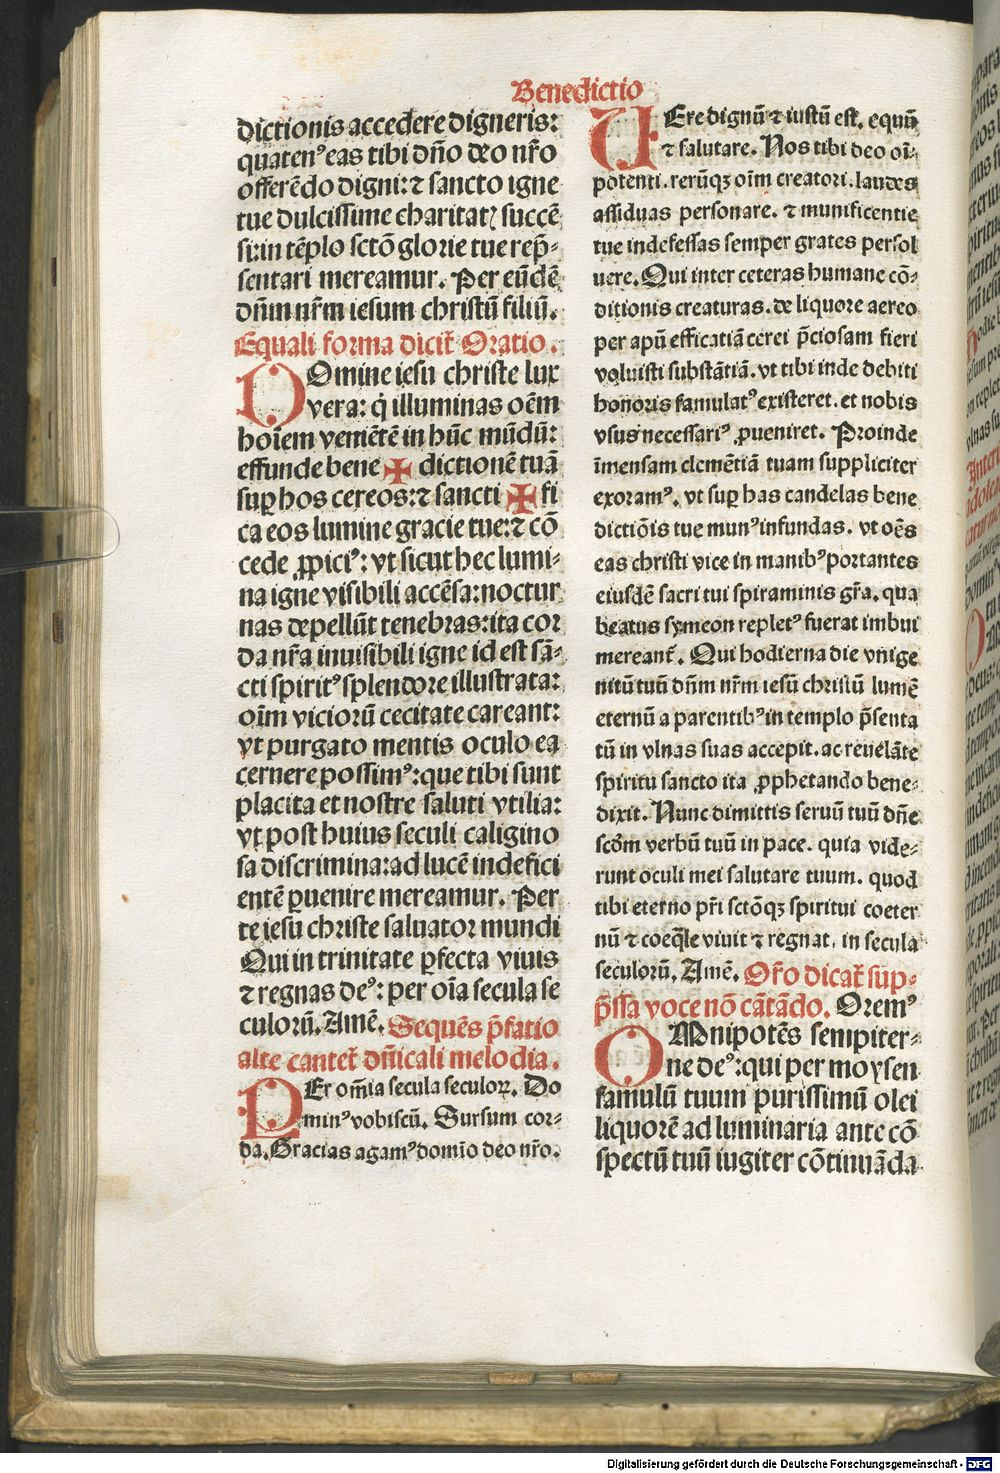 Benedictio
dictionis accedere digneris:
quatenꝰ eas tibi dño deo nr̃o
offerẽdo digni: ⁊ sancto igne
tue dulcissime charitatꝫ succẽ
si: in tẽplo sctõ glorie tue rep̃⸗
sentari mereamur. Per eũdẽ
dñm nr̃m iesum christũ filiũ.
Equali forma dicit̃ Oratio.
DOmine iesu christe lux
vera: q̇ illuminas oẽm
hoĩem veniẽtẽ in hũc mũdũ:
effunde bene ✠ dictionẽ tuã
suꝑ hos cereos: ⁊ sancti ✠ fi
ca eos lumine gracie tue: ⁊ cõ
cede ꝓpiciꝰ: vt sicut hec lumi⸗
na igne visibili accẽsa: noctur
nas depellũt tenebras: ita cor
da nr̃a inuisibili igne id est sã⸗
cti spiritꝰ splendore illustrata:
oĩm viciorũ cecitate careant:
vt purgato mentis oculo ea
cernere possimꝰ: que tibi sunt
placita et nostre saluti vtilia:
vt post huius seculi caligino
sa discrimina: ad lucẽ indefici
entẽ ꝑuenire mereamur. Per
te iesu christe saluator mundi
Qui in trinitate ꝑfecta viuis
⁊ regnas deꝰ: per oĩa secula se
culorũ. Amẽ. Sequẽs p̃fatio
alte cantet̃ dñicali melodia.
PEr om̃ia secula seculoꝝ. Do
minꝰ vobiscũ. Sursum cor⸗
da. Gracias agamꝰ domĩo deo nr̃o.
UEre dignũ ⁊ iustũ est. equũ
⁊ salutare. Nos tibi deo oĩ⸗
potenti. rerũqꝫ oĩm creatori. laudes
assiduas personare. ⁊ munificentie
tue indefessas semper grates persol
uere. Qui inter ceteras humane cõ⸗
ditionis creaturas. de liquore aereo
per apũ efficatiã cerei p̃ciosam fieri
voluisti substãtiã. vt tibi inde debiti
honoris famulatꝰ existeret. et nobis
vsus necessariꝰ ꝓueniret. Proinde
ĩmensam clemẽtiã tuam suppliciter
exoramꝰ. vt suꝑ has candelas bene
dictiõis tue munꝰ infundas. vt oẽs
eas christi vice in manibꝰ portantes
eiusdẽ sacri tui spiraminis gr̃a. qua
beatus symeon repletꝰ fuerat imbui
mereant̃. Qui hodierna die vnige
nitũ tuũ dñm nr̃m iesũ christũ lumẽ
eternũ a parentibꝰ in templo p̃senta
tũ in vlnas suas accepit. ac reuelãte
spiritu sancto ita ꝓphetando bene⸗
dixit. Nunc dimittis seruũ tuũ dñe
scd̃m verbũ tuũ in pace. quia vide⸗
runt oculi mei salutare tuum. quod
tibi eterno pr̃i sctõqꝫ spiritui coeter
nũ ⁊ coeq̃le viuit ⁊ regnat, in secula
seculorũ. Amẽ. Or̃o dicat̃ sup⸗
p̃ssa voce nõ cãtãdo. Oremꝰ
OMnipotẽs sempiter⸗
ne deꝰ: qui per moysen
famulũ tuum purissimũ olei
liquorẽ ad luminaria ante cõ
spectũ tuũ iugiter cõtinuãda
Digitalisierung gefördert durch die Deutsche Forschungsgemeinschaft - DFG